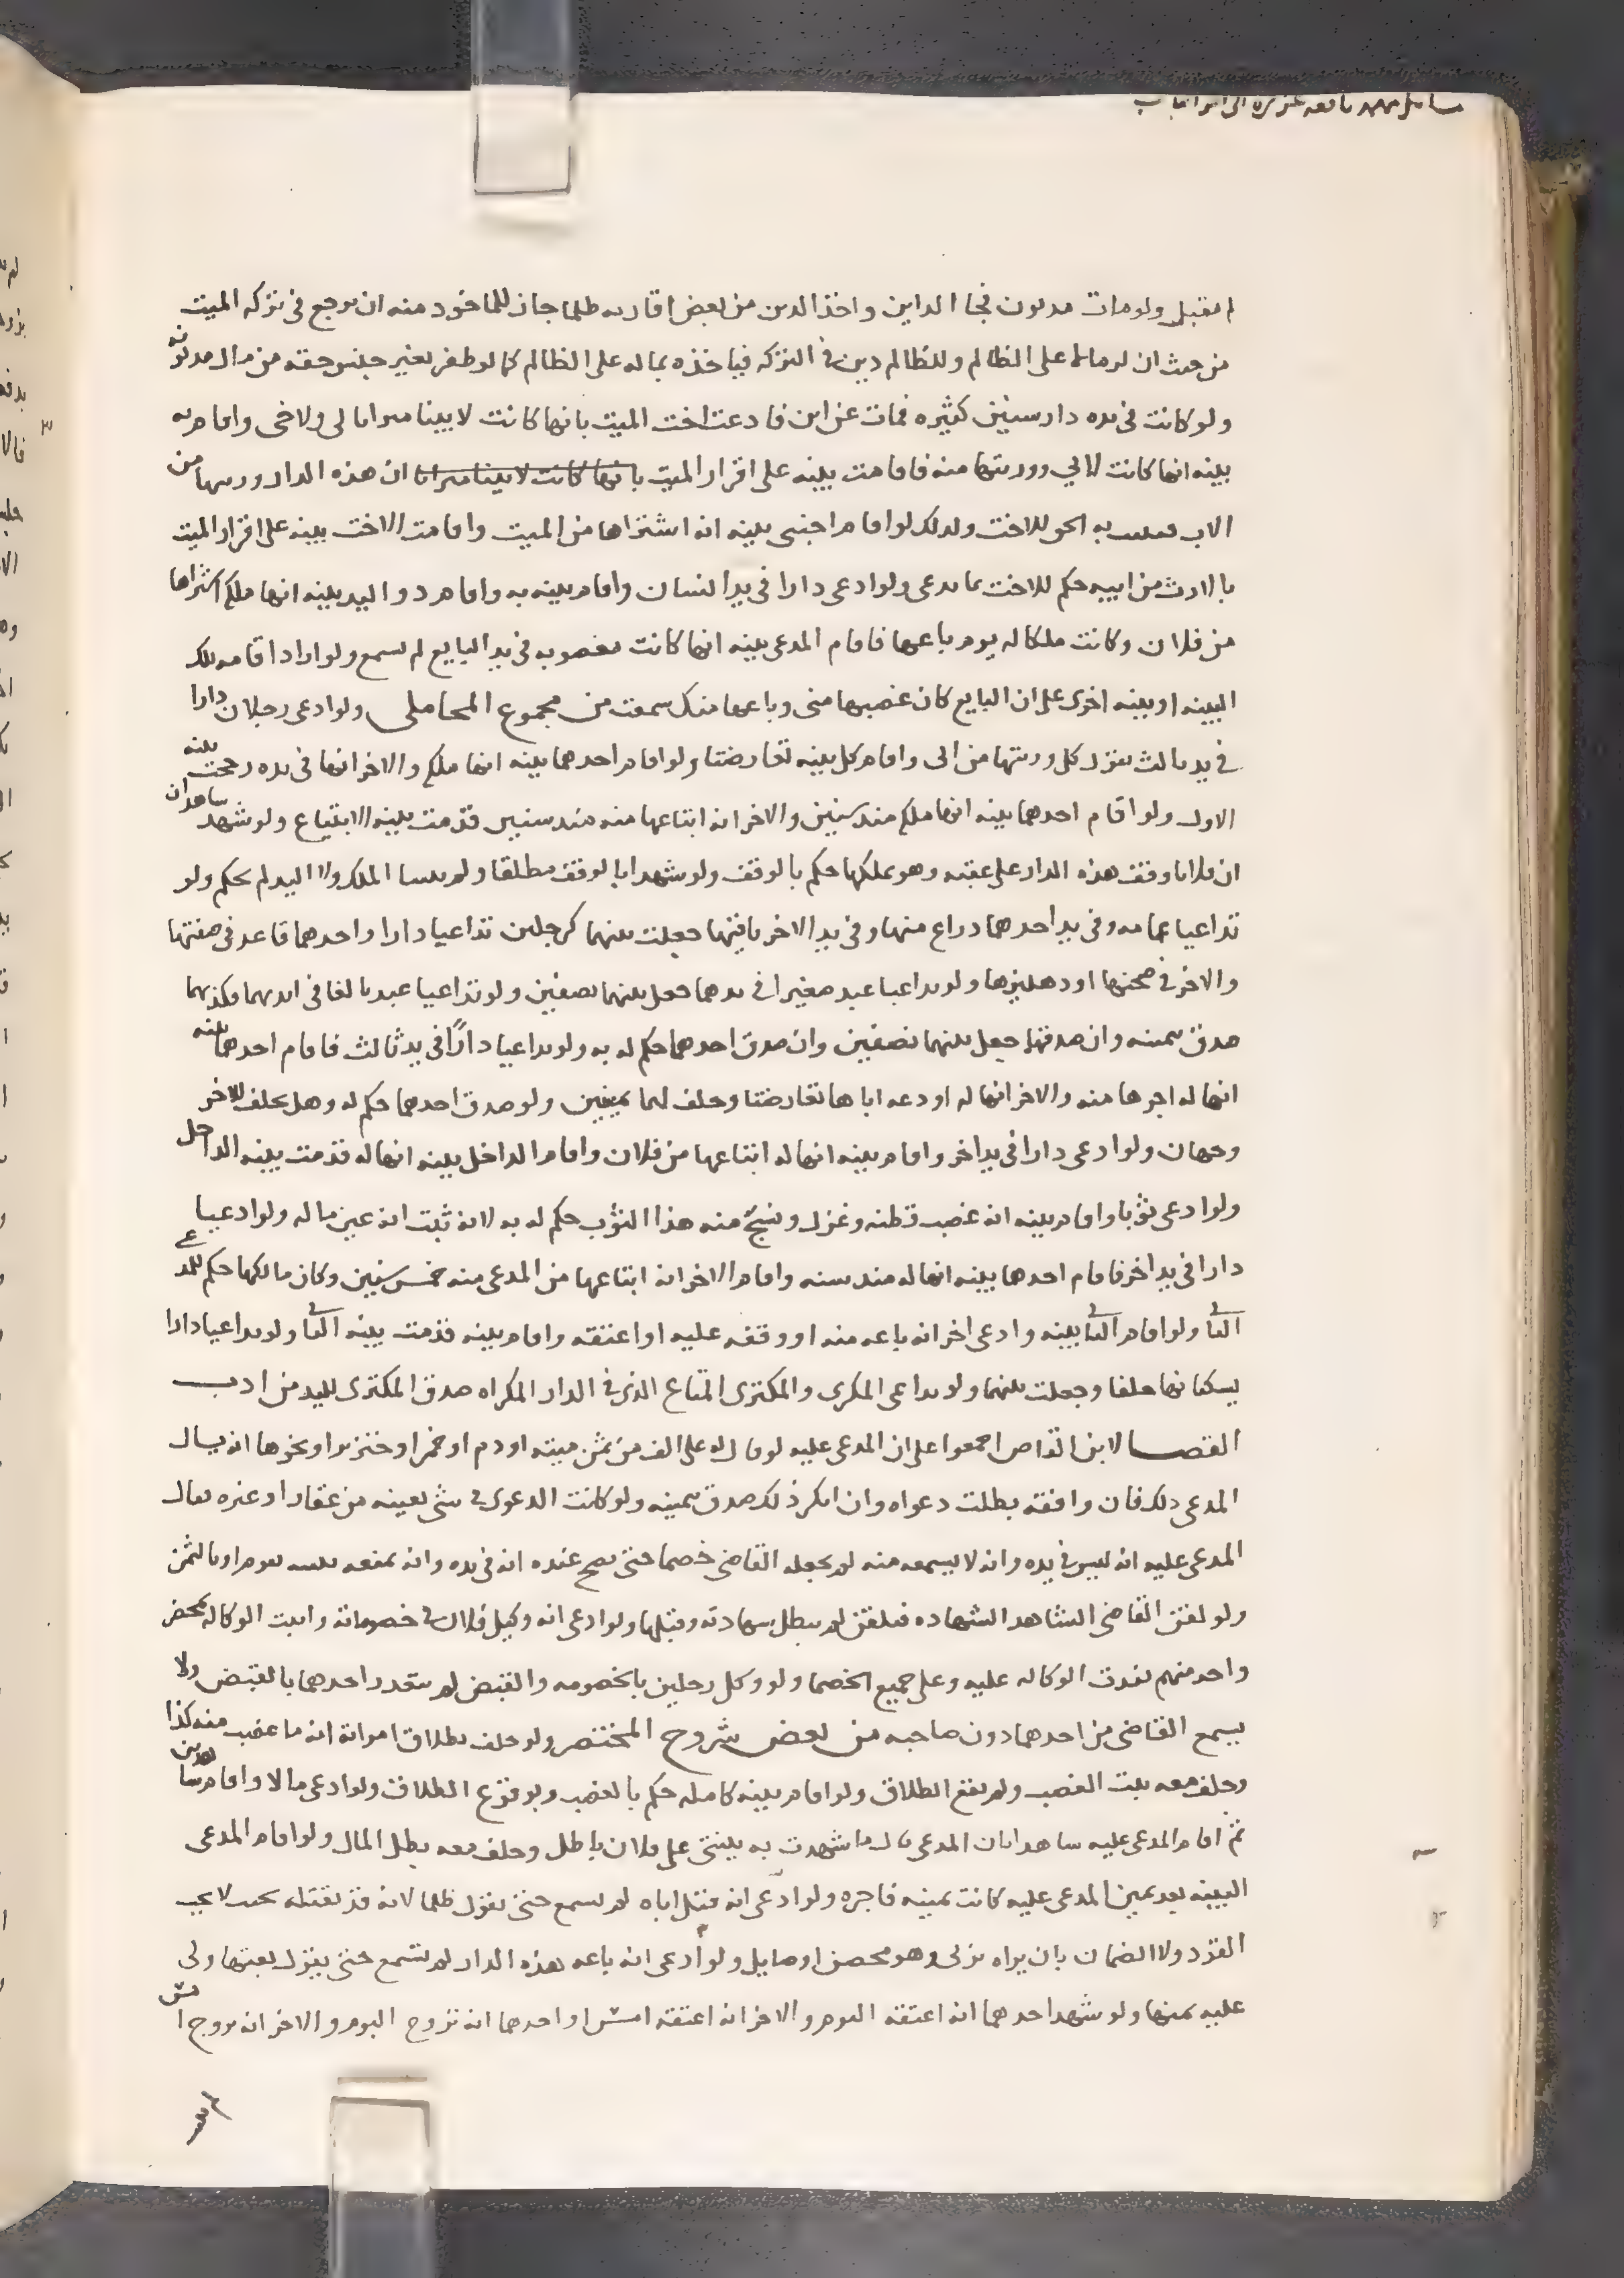 مسايل مهمه نافعه
لم يقبل ولو مات مديون فجا الداين واخذ الدين من بعض اقاربه ظلما جاز للماخوذ منه ان يرجع في تركه الميت
من حيث ان له مالا على الظالم وللظالم دين في التركه فياخذه بماله على الظالم كما لو ظفر بغير جنس حقه من مال مديونه
ولو كانت في يده دار سنين كثيره فمات عن ابن فادعت اخت الميت بانها كانت لابينا ميراثا لي ولاخي واقامت به
بينه انها كانت لابي وورثتها منه فاقامت بينه على اقرار الميت بانها كانت لابينا ميراثا ان هذه الدار ورثها من
الاب به الحق للاخت وكذلك لو اقام اجنبي بينه انه اشتراها من الميت واقامت الاخت بينه على اقرار الميت
بالارث من ابيه حكم للاخت بما تدعي ولو ادعى دارا في يد انسان واقام بينه به واقام ذو اليد بينه انها ملكه اشتراها
من فلان وكانت ملكا له يوم باعها فاقام المدعي بينه انها كانت مغصوبه في يد البايع لم تسمع ولو اراد اقامه تلك
البينه او بينه اخرى على ان البايع كان غصبها مني وباعها منك سمعت من مجموع المحاملي ولو ادعى رجلان دارا
في يد ثالث يقول كل ورثتها من ابي واقام كل بينه تعارضتا ولو اقام احدهما بينه انها ملكه والاخر انها في يده رجحت بينه
الاول ولو اقام احدهما بينه انها ملكه منذ سنين والاخر انه ابتاعها منه منذ سنين قدمت بينه الابتياع ولو شهد شاهدان
ان فلانا وقف هذه الدار على عقبه وهو يملكها حكم بالوقف ولو شهدا بالوقف مطلقا ولم يبينا الملك ولا اليد لم يحكم ولو
تداعيا عمامه وفي يد احدهما ذراع منها وفي يد الاخر باقيها جعلت بينهما كرجلين تداعيا دارا واحدهما قاعد في صفتها
والاخر في صحنها او دهليزها ولو تداعيا عبدا صغيرا في يدهما جعل بينهما نصفين ولو تداعيا عبدا بالغا في ايديهما فكذبهما
صدق بيمينه وان صدقهما جعل بينهما نصفين وان صدق احدهما حكم له به ولو تداعيا دارا في يد ثالث فاقام احدهما بينه
انها له اجرها منه والاخر انها له اودعه اياها تعارضتا وحلف لهما يمينين ولو صدق احدهما حكم له وهل يحلف للاخر
وجهان ولو ادعى دارا في يد اخر واقام بينه انها له ابتاعها من فلان واقام الداخل بينه انها له قدمت بينه الداخل
ولو ادعى ثوبا واقام بينه انه غصب قطنه وغزل ونسج منه هذا الثوب حكم له به لانه ثبت انه عين ماله ولو ادعيا
دارا في يد اخر فاقام احدهما بينه انها له منذ سنه واقام الاخر انه ابتاعها من المدعى منه خمس سنين وكان مالكها حكم للمدعي
الثاني ولو اقام الثاني بينه وادعى اخر انه باعه منه او وقفه عليه او اعتقه واقام بينه قدمت بينه الثاني ولو تداعيا دارا
يسكنانها حلفا وجعلت بينهما ولو تداعى المكري والمكتري المتاع الذي في الدار المكراه صدق المكتري لليد من ادب
القضا لابن القاص اجمعوا على ان المدعى عليه لو قال له على الف من ثمن ميته او دم او خمر او خنزير او نحوها انه يسال
المدعي ذلك فان وافقه بطلت دعواه وان انكر ذلك صدق بيمينه ولو كانت الدعوى في شي بعينه من عقار او غيره فقال
المدعى عليه انه ليس في يده وانه لا يمنعه منه لم يجعله القاضي خصما حتى يصح عنده انه في يده وانه يمنعه
ولو لقن القاضي الشاهد الشهاده فتلقن لم يبطل شهادته وقبلها ولو ادعى انه وكيل فلان في خصوماته واثبت الوكاله بمحضر
واحد منهم نفذت الوكاله عليه وعلى جميع الخصما ولو وكل رجلين بالخصومه والقبض لم ينفرد احدهما بالقبض ولا
يسمع القاضي من احدهما دون صاحبه من بعض شروح المختصر ولو حلف بطلاق امراته انه ما غصب منه كذا
وحلف معه ثبت الغصب ولم يقع الطلاق ولو اقام بينه كامله حكم بالغصب وبوقوع الطلاق ولو ادعى مالا واقام شاهدين
ثم اقام المدعى عليه شاهدا بان المدعي قال ما شهدت به بينتي على فلان باطل وحلف معه بطل المال ولو اقام المدعي
البينه بعد يمين المدعى عليه كانت يمينه فاجره ولو ادعى انه قتل اباه لم تسمع حتى يقول ظلما لانه قد يقتله بحيث لا يجب
القود ولا الضمان بان يراه يزني وهو محصن او صايل ولو ادعى انه باعه هذه الدار لم تسمع حتى يقول بعتها ولي
عليه ثمنها ولو شهد احدهما انه اعتقه اليوم والاخر انه اعتقه امس او احدهما انه تزوج اليوم والاخر انه تزوج امس